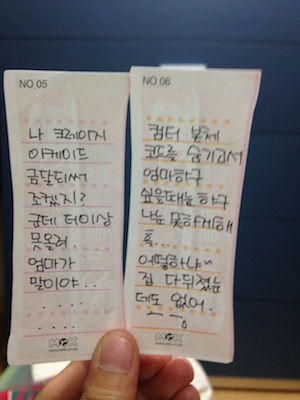 NO.05
나 크레이지
아케이드
금달되써
조켔지?
군데 더이상
못올려.
엄마가
말이야..
....
....
NO.06
컴터 본체
코드를 숨기고서
엄마하구
싶을때는 하구
나는 못하게해
흑...
어떻하냐~
집 다뒤졌는
데도 없어.